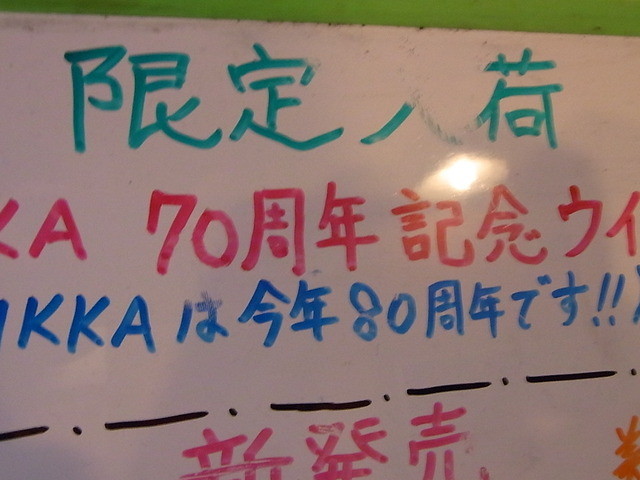 限定入荷
KA 70周年記念ウイ
IKKAは今年80周年です!!
新発売